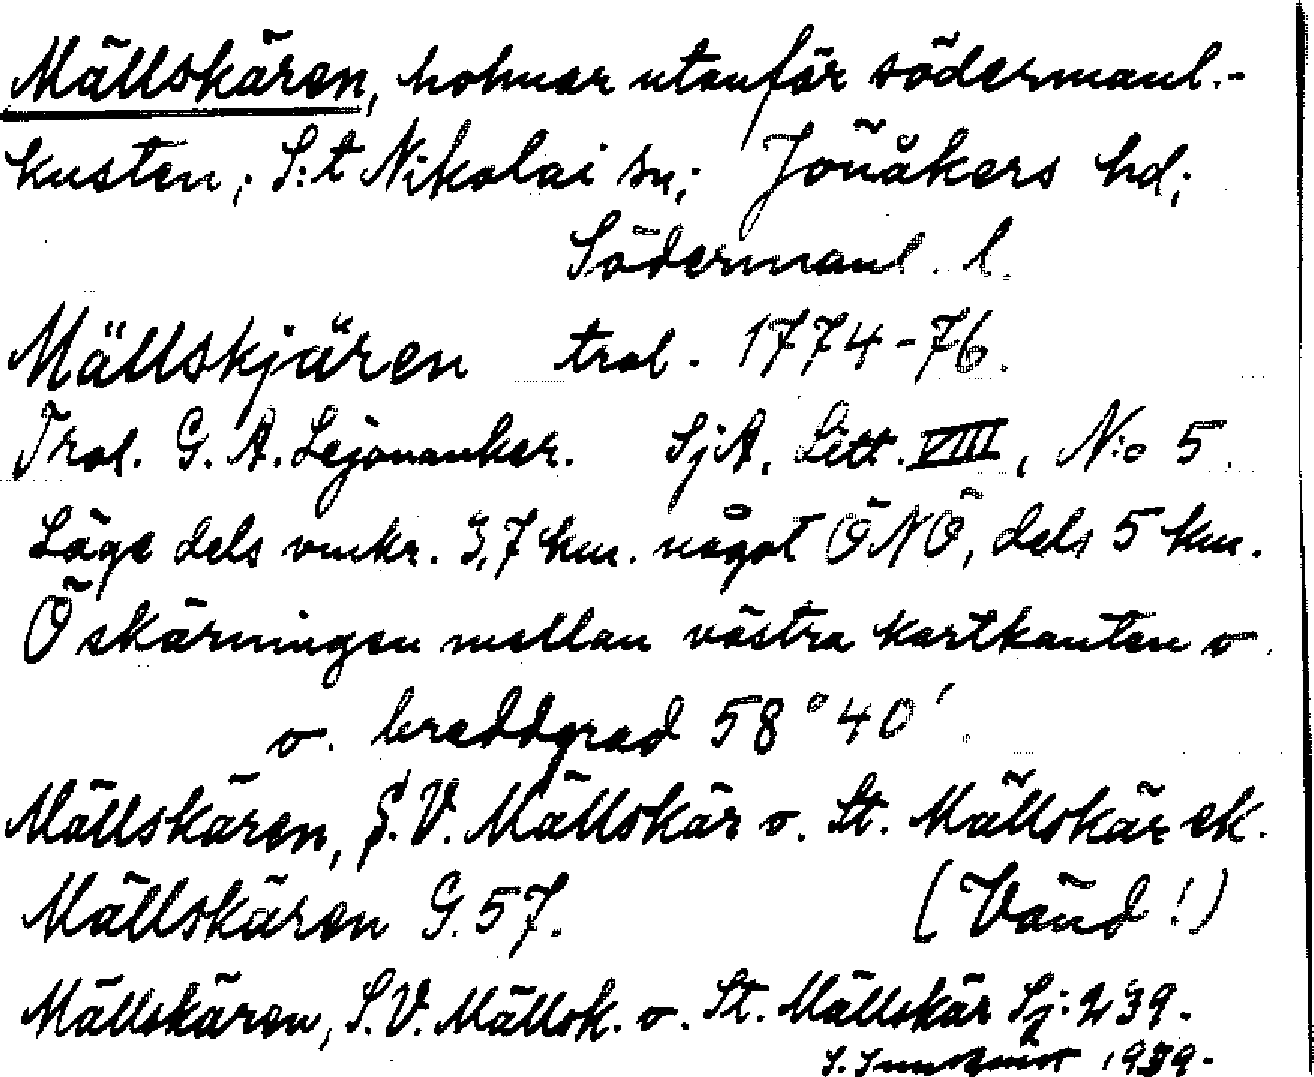 Mällskären, holmar utanför södermanl.-
kusten; S:t Nikolai sn; Jönåkers hd;
Södermanl. l.
Mällskjären trol. 1774-76.
Trol. G. A. Lejonanker. SjA, Litt. VIII, N:o 5.
Läge dels omkr. 3,7 km. något ÖNÖ, dels 5 km.
Ö skärningen mellan västra kartkanten o.
o. breddgrad 58° 40'.
Mällskären, S.V. Mällskär o. St. Mällskär ek.
Mällskären G. 57. (Vänd!)
Mällskären, S.V. Mällsk. o. St. Mällskär Sj: 239.